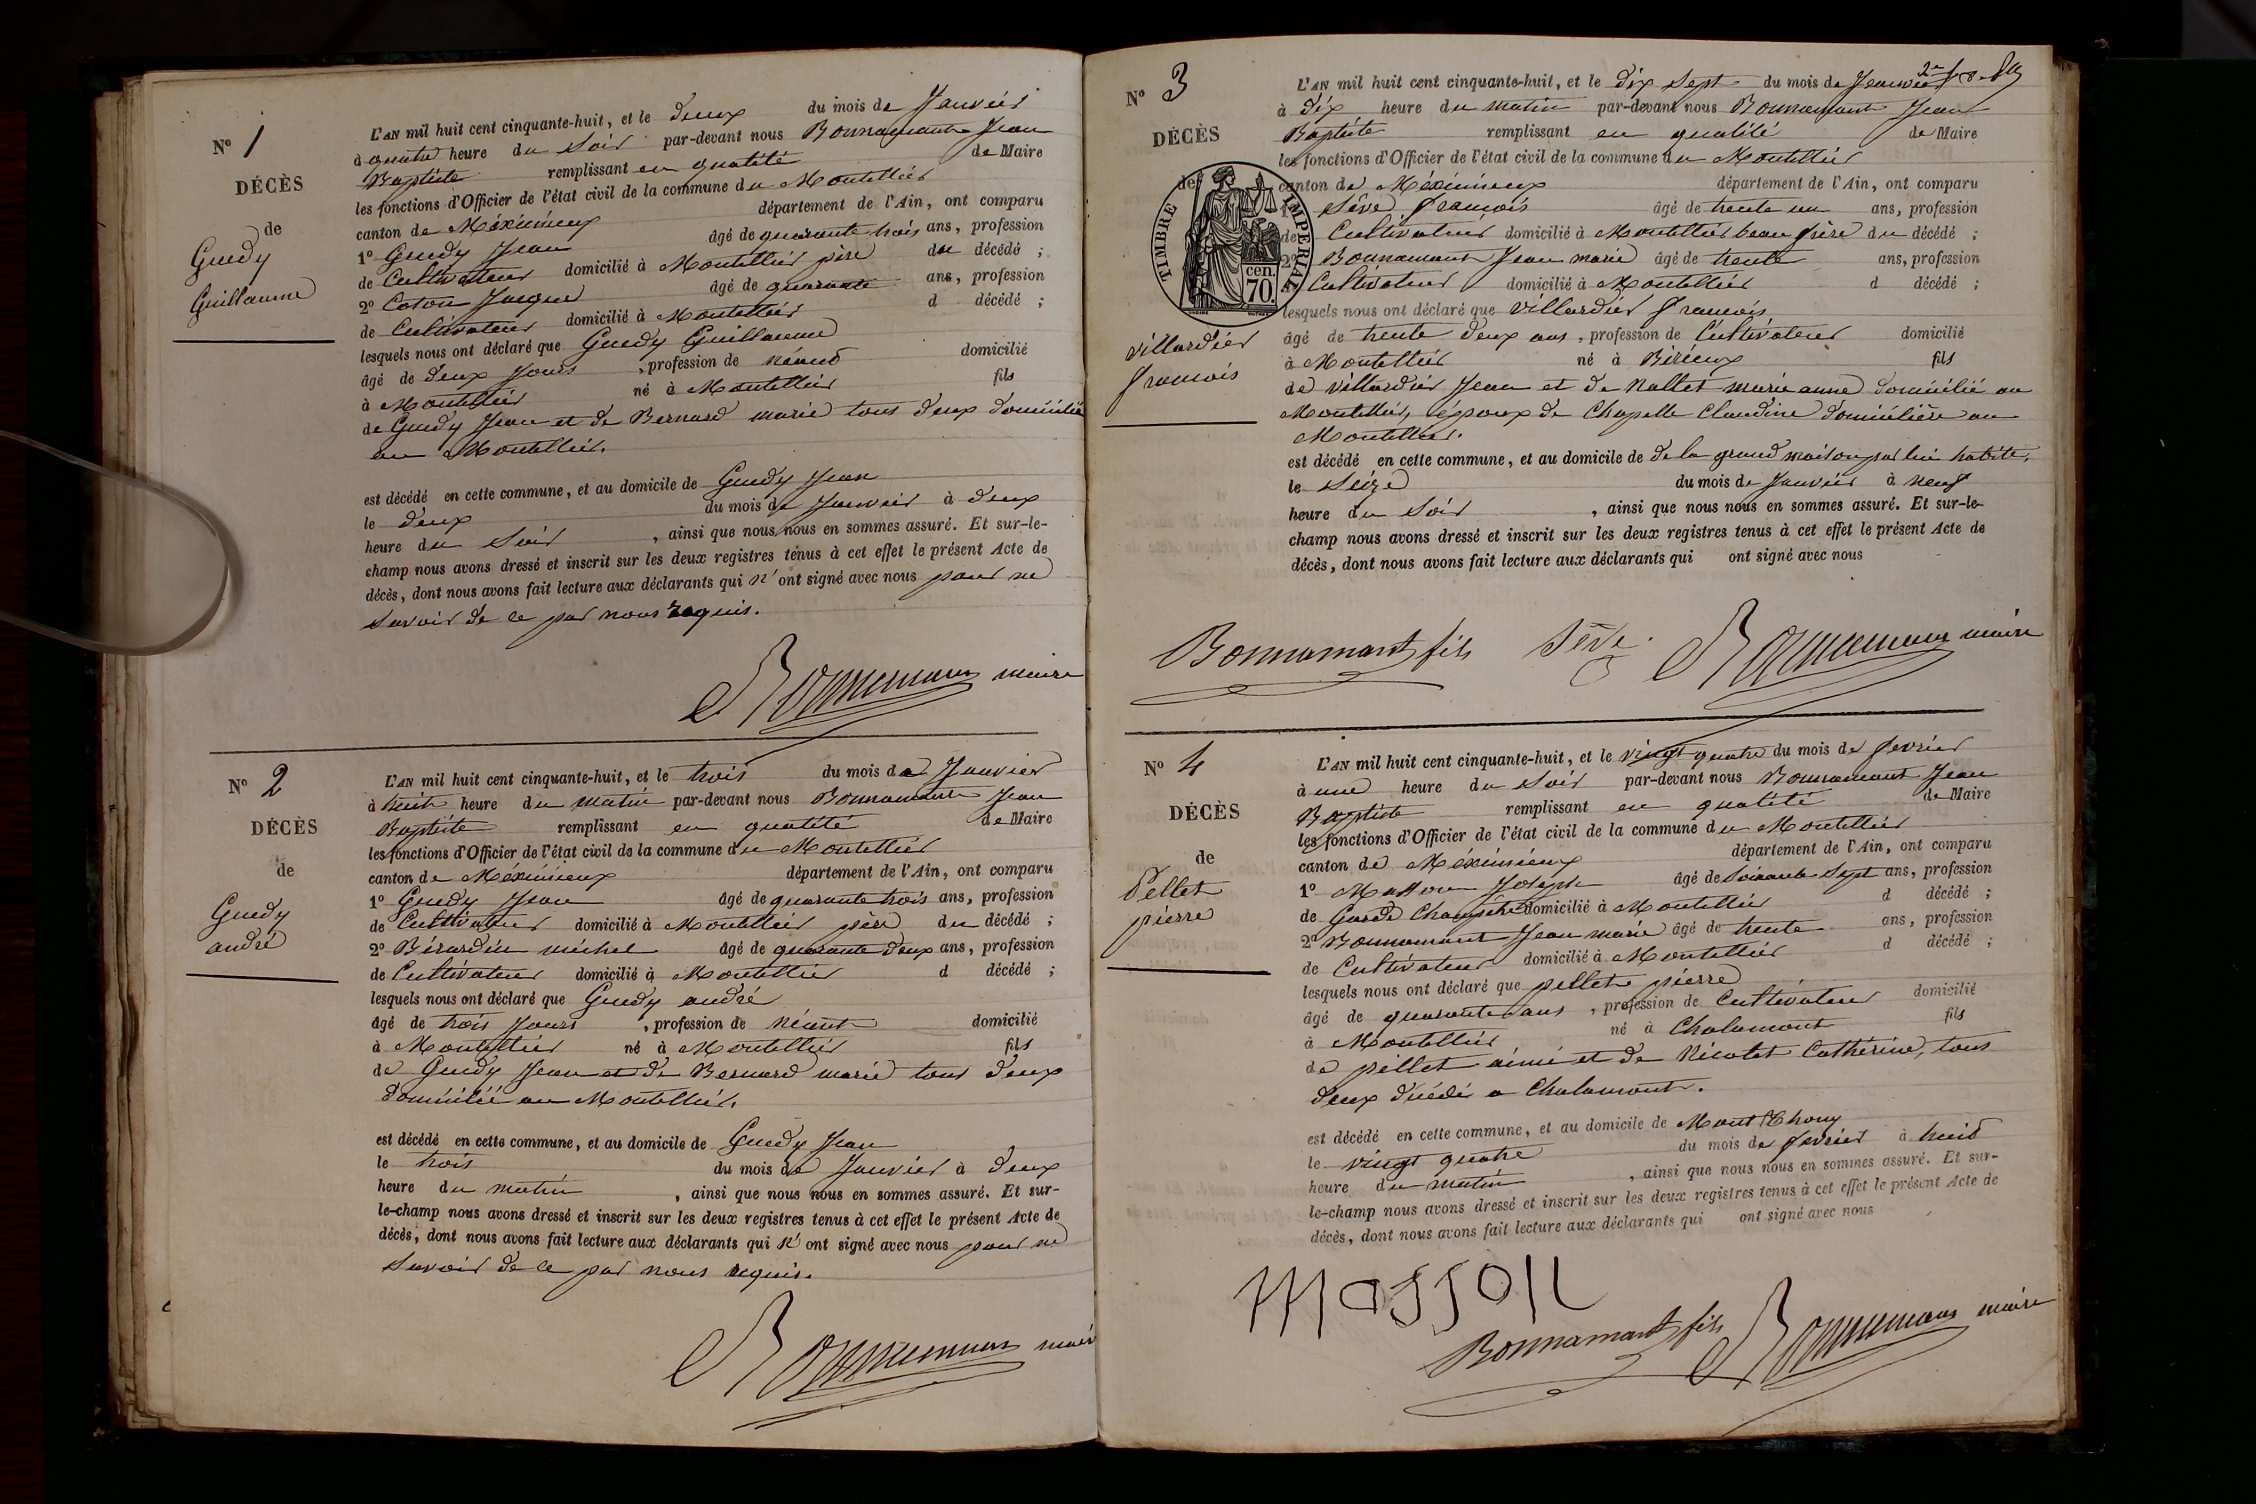 N° 1
DÉCÈS
de
Guedy
Guillaume
L'AN mil huit cent cinquante-huit, et le deux du mois de Janvier
à quatre heure du Soir par-devant nous Bonnamant Jean
Baptiste remplissant en qualité de Maire
les fonctions d'Officier de l'état civil de la commune du Montellier
canton de Méximieux département de l'Ain, ont comparu
1° Guedy Jean âgé de quarante trois ans, profession
de Cultivateur domicilié à Montellier père du décédé ;
2° Coton Jacque âgé de quarante ans, profession
de Cultivateur domicilié à Montellier d décédé ;
lesquels nous ont déclaré que Guedy Guillaume
âgé de deux Jours , profession de néant domicilié
à Montellier né à Montellier fils
de Guedy Jean et de Bernard marie tous deux domicilié
au Montellier.
est décédé en cette commune, et au domicile de Guedy Jean
le deux du mois de Janvier à deux
heure du Soir , ainsi que nous nous en sommes assuré. Et sur-le-
champ nous avons dressé et inscrit sur les deux registres tenus à cet effet le présent Acte de
décès, dont nous avons fait lecture aux déclarants qui n' ont signé avec nous pour ne
Savoir de ce par nous requis.
Bonnamant maire
N° 2
DÉCÈS
de
Guedy
andré
L'AN mil huit cent cinquante-huit, et le trois du mois de Janvier
à huit heure du matin par-devant nous Bonnamant Jean
Baptiste remplissant en qualité de Maire
les fonctions d'Officier de l'état civil de la commune du Montellier
canton de Méximieux département de l'Ain, ont comparu
1° Guedy Jean âgé de quarante trois ans, profession
de Cultivateur domicilié à Montellier père du décédé ;
2° Bérardin michel âgé de quarante deux ans, profession
de Cultivateur domicilié à Montellier d décédé ;
lesquels nous ont déclaré que Guedy andré
âgé de trois Jours , profession de néant domicilié
à Montellier né à Montellier fils
de Guedy Jean et de Bernard marie tous deux
domicilié au Montellier.
est décédé en cette commune, et au domicile de Guedy Jean
le trois du mois de Janvier à deux
heure du matin , ainsi que nous nous en sommes assuré. Et sur-
le-champ nous avons dressé et inscrit sur les deux registres tenus à cet effet le présent Acte de
décès, dont nous avons fait lecture aux déclarants qui n' ont signé avec nous pour ne
Savoir de ce par nous requis.
Bonnamant maire
N° 3
DÉCÈS
de
TIMBRE IMPERIAL
70 cen.
villardier
francois
L'AN mil huit cent cinquante-huit, et le dix Sept du mois de Janvier
à dix heure du matin par-devant nous Bonnamant Jean
Baptiste remplissant en qualité de Maire
les fonctions d'Officier de l'état civil de la commune du Montellier
canton de Méximieux département de l'Ain, ont comparu
1° Sève francois âgé de trente un ans, profession
de Cultivateur domicilié à Montellier beau frère du décédé ;
2° Bonnamant Jean marie âgé de trente ans, profession
Cultivateur domicilié à Montellier d décédé ;
lesquels nous ont déclaré que villardier francois
âgé de trente deux ans , profession de Cultivateur domicilié
à Montellier né à Birieux fils
de villardier Jean et de Nallet marie anne domicilié au
Montellier, époux de Chapelle Claudine domicilière au
Montellier.
est décédé en cette commune, et au domicile de de la grand maison par lui habité,
le Seize du mois de Janvier à neuf
heure du Soir , ainsi que nous nous en sommes assuré. Et sur-le-
champ nous avons dressé et inscrit sur les deux registres tenus à cet effet le présent Acte de
décès, dont nous avons fait lecture aux déclarants qui ont signé avec nous
Bonnamant fils Sève Bonnamant maire
N° 4
DÉCÈS
de
Pellet
pierre
L'AN mil huit cent cinquante-huit, et le vingt quatre du mois de fevrier
à une heure du Soir par-devant nous Bonnamant Jean
Baptiste remplissant en qualité de Maire
les fonctions d'Officier de l'état civil de la commune du Montellier
canton de Méximieux département de l'Ain, ont comparu
1° Masson Joseph âgé de Soixante Sept ans, profession
de Garde Champêtre domicilié à Montellier d décédé ;
2° Bonnamant Jean marie âgé de trente ans, profession
de Cultivateur domicilié à Montellier d décédé ;
lesquels nous ont déclaré que pellet pierre
âgé de quarante ans , profession de Cultivateur domicilié
à Montellier né à Chalamont fils
de pellet aimé et de Nicolet Cathérine, tous
deux décédé a Chalamont.
est décédé en cette commune, et au domicile de Mont Chouy
le vingt quatre du mois de fevrier à huit
heure du matin , ainsi que nous nous en sommes assuré. Et sur-
le-champ nous avons dressé et inscrit sur les deux registres tenus à cet effet le présent Acte de
décès, dont nous avons fait lecture aux déclarants qui ont signé avec nous
Masson
Bonnamant fils Bonnamant maire